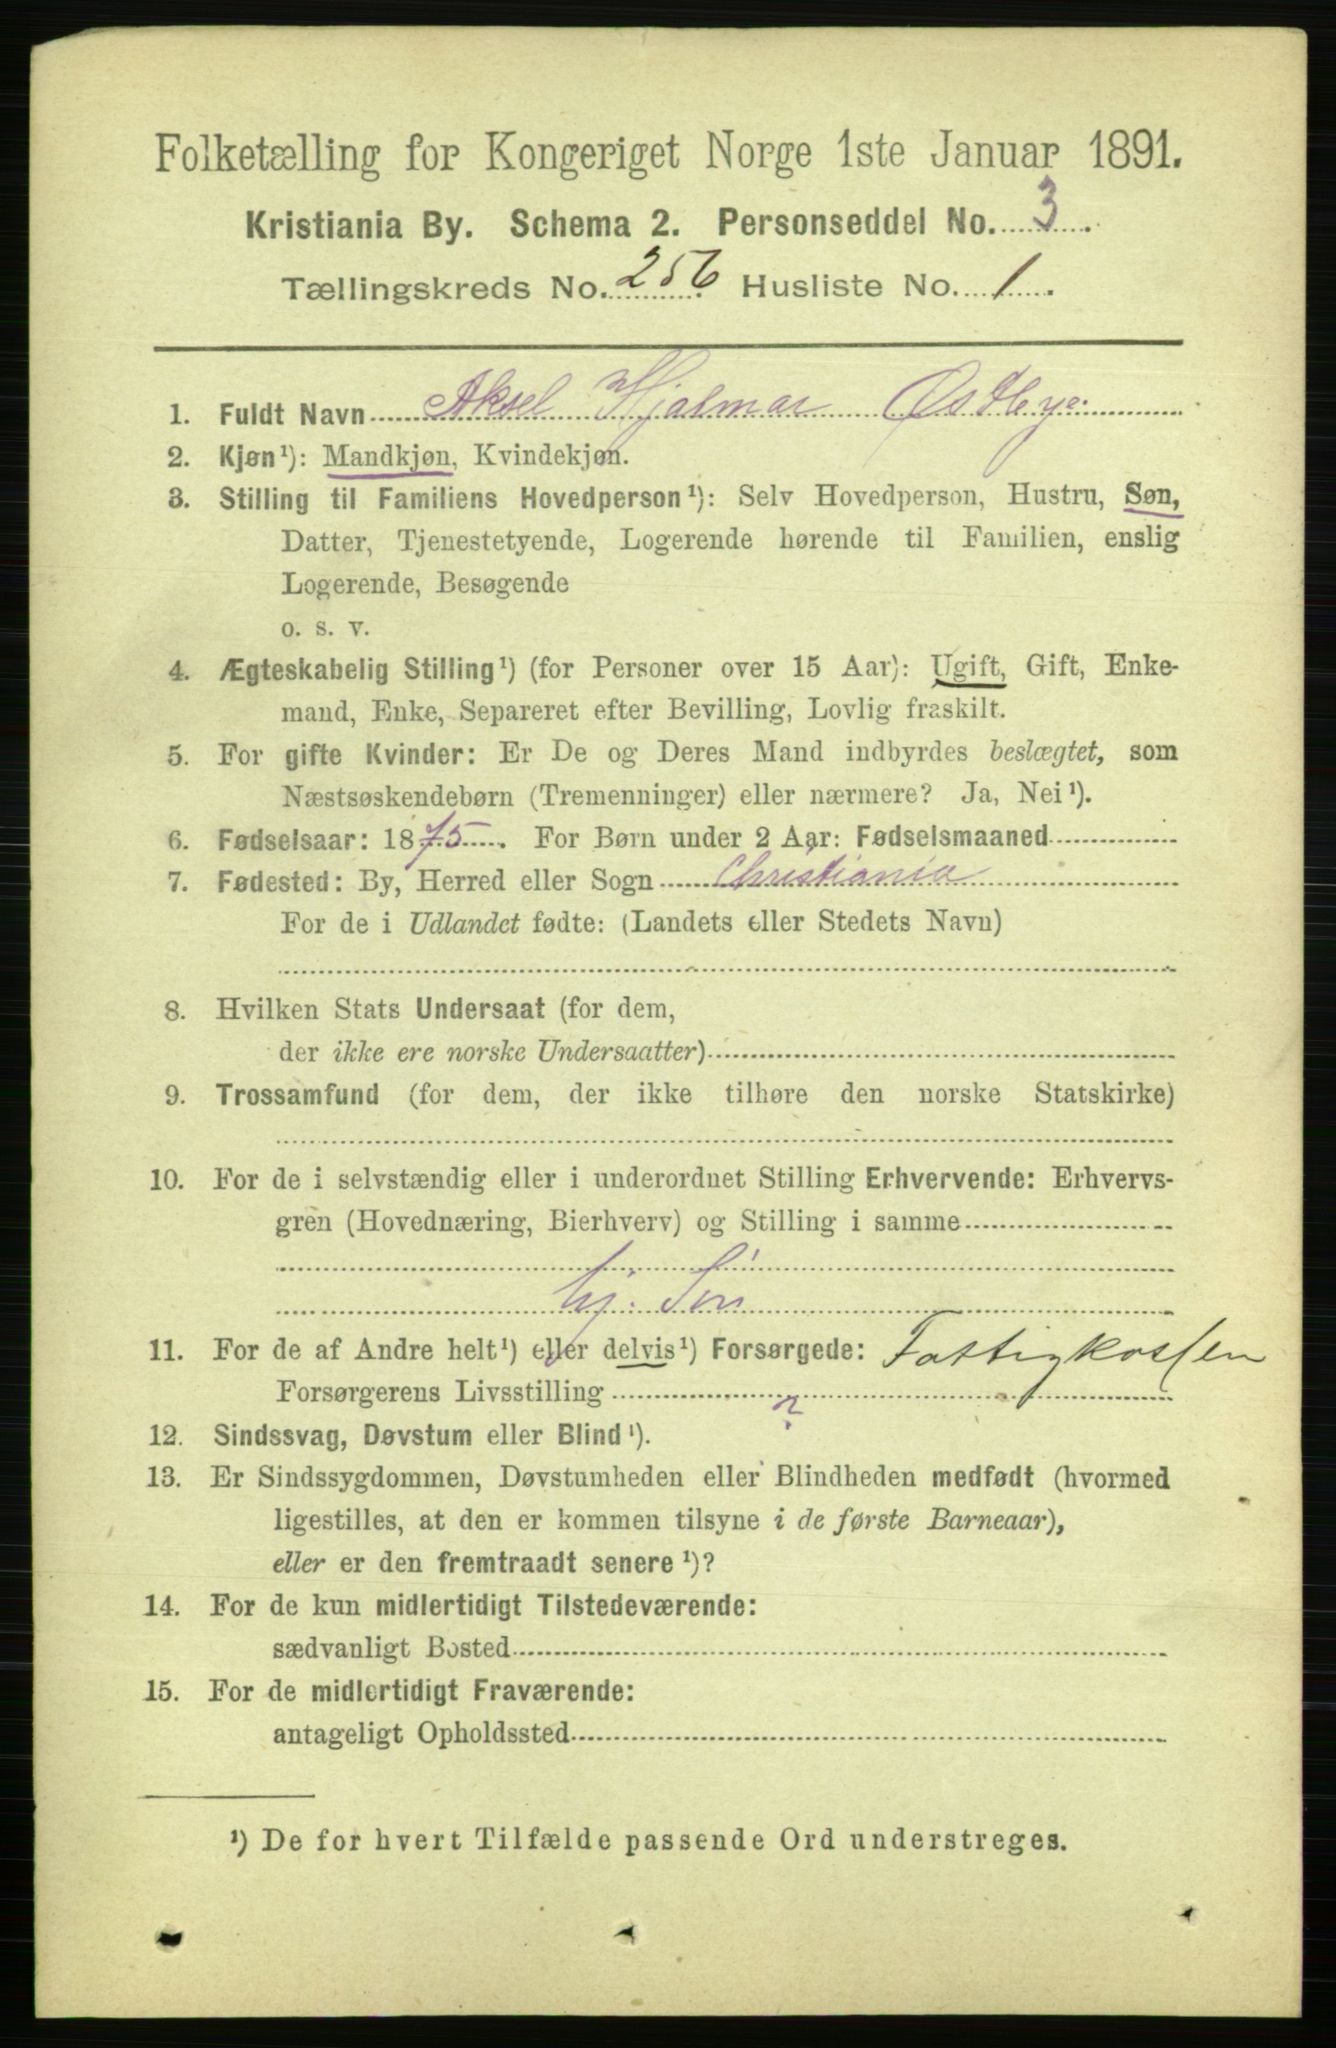 Folketælling for Kongeriget Norge 1ste Januar 1891.
Kristiania By. Schema 2. Personseddel No. 3.
Tællingskreds No. 256. Husliste No. 1.
1. Fuldt Navn Aksel Hjalmar Østbye.
2. Kjøn¹): Mandkjøn, Kvindekjøn.
3. Stilling til Familiens Hovedperson¹): Selv Hovedperson, Hustru, Søn,
Datter, Tjenestetyende, Logerende hørende til Familien, enslig
Logerende, Besøgende
o. s. v.
4. Ægteskabelig Stilling¹) (for Personer over 15 Aar): Ugift, Gift, Enke-
mand, Enke, Separeret efter Bevilling, Lovlig fraskilt.
5. For gifte Kvinder: Er De og Deres Mand indbyrdes beslægtet, som
Næstsøskendebørn (Tremenninger) eller nærmere? Ja, Nei¹).
6. Fødselsaar: 1875. For Børn under 2 Aar: Fødselsmaaned
7. Fødested: By, Herred eller Sogn Christiania
For de i Udlandet fødte: (Landets eller Stedets Navn)
8. Hvilken Stats Undersaat (for dem,
der ikke ere norske Undersaatter)
9. Trossamfund (for dem, der ikke tilhøre den norske Statskirke)
10. For de i selvstændig eller i underordnet Stilling Erhvervende: Erhvervs-
gren (Hovednæring, Bierhverv) og Stilling i samme
hj. Søn
11. For de af Andre helt¹) eller delvis¹) Forsørgede: Fattigkassen
Forsørgerens Livsstilling
?
12. Sindssvag, Døvstum eller Blind¹).
13. Er Sindssygdommen, Døvstumheden eller Blindheden medfødt (hvormed
ligestilles, at den er kommen tilsyne i de første Barneaar),
eller er den fremtraadt senere¹)?
14. For de kun midlertidigt Tilstedeværende:
sædvanligt Bosted
15. For de midlertidigt Fraværende:
antageligt Opholdssted
¹) De for hvert Tilfælde passende Ord understreges.